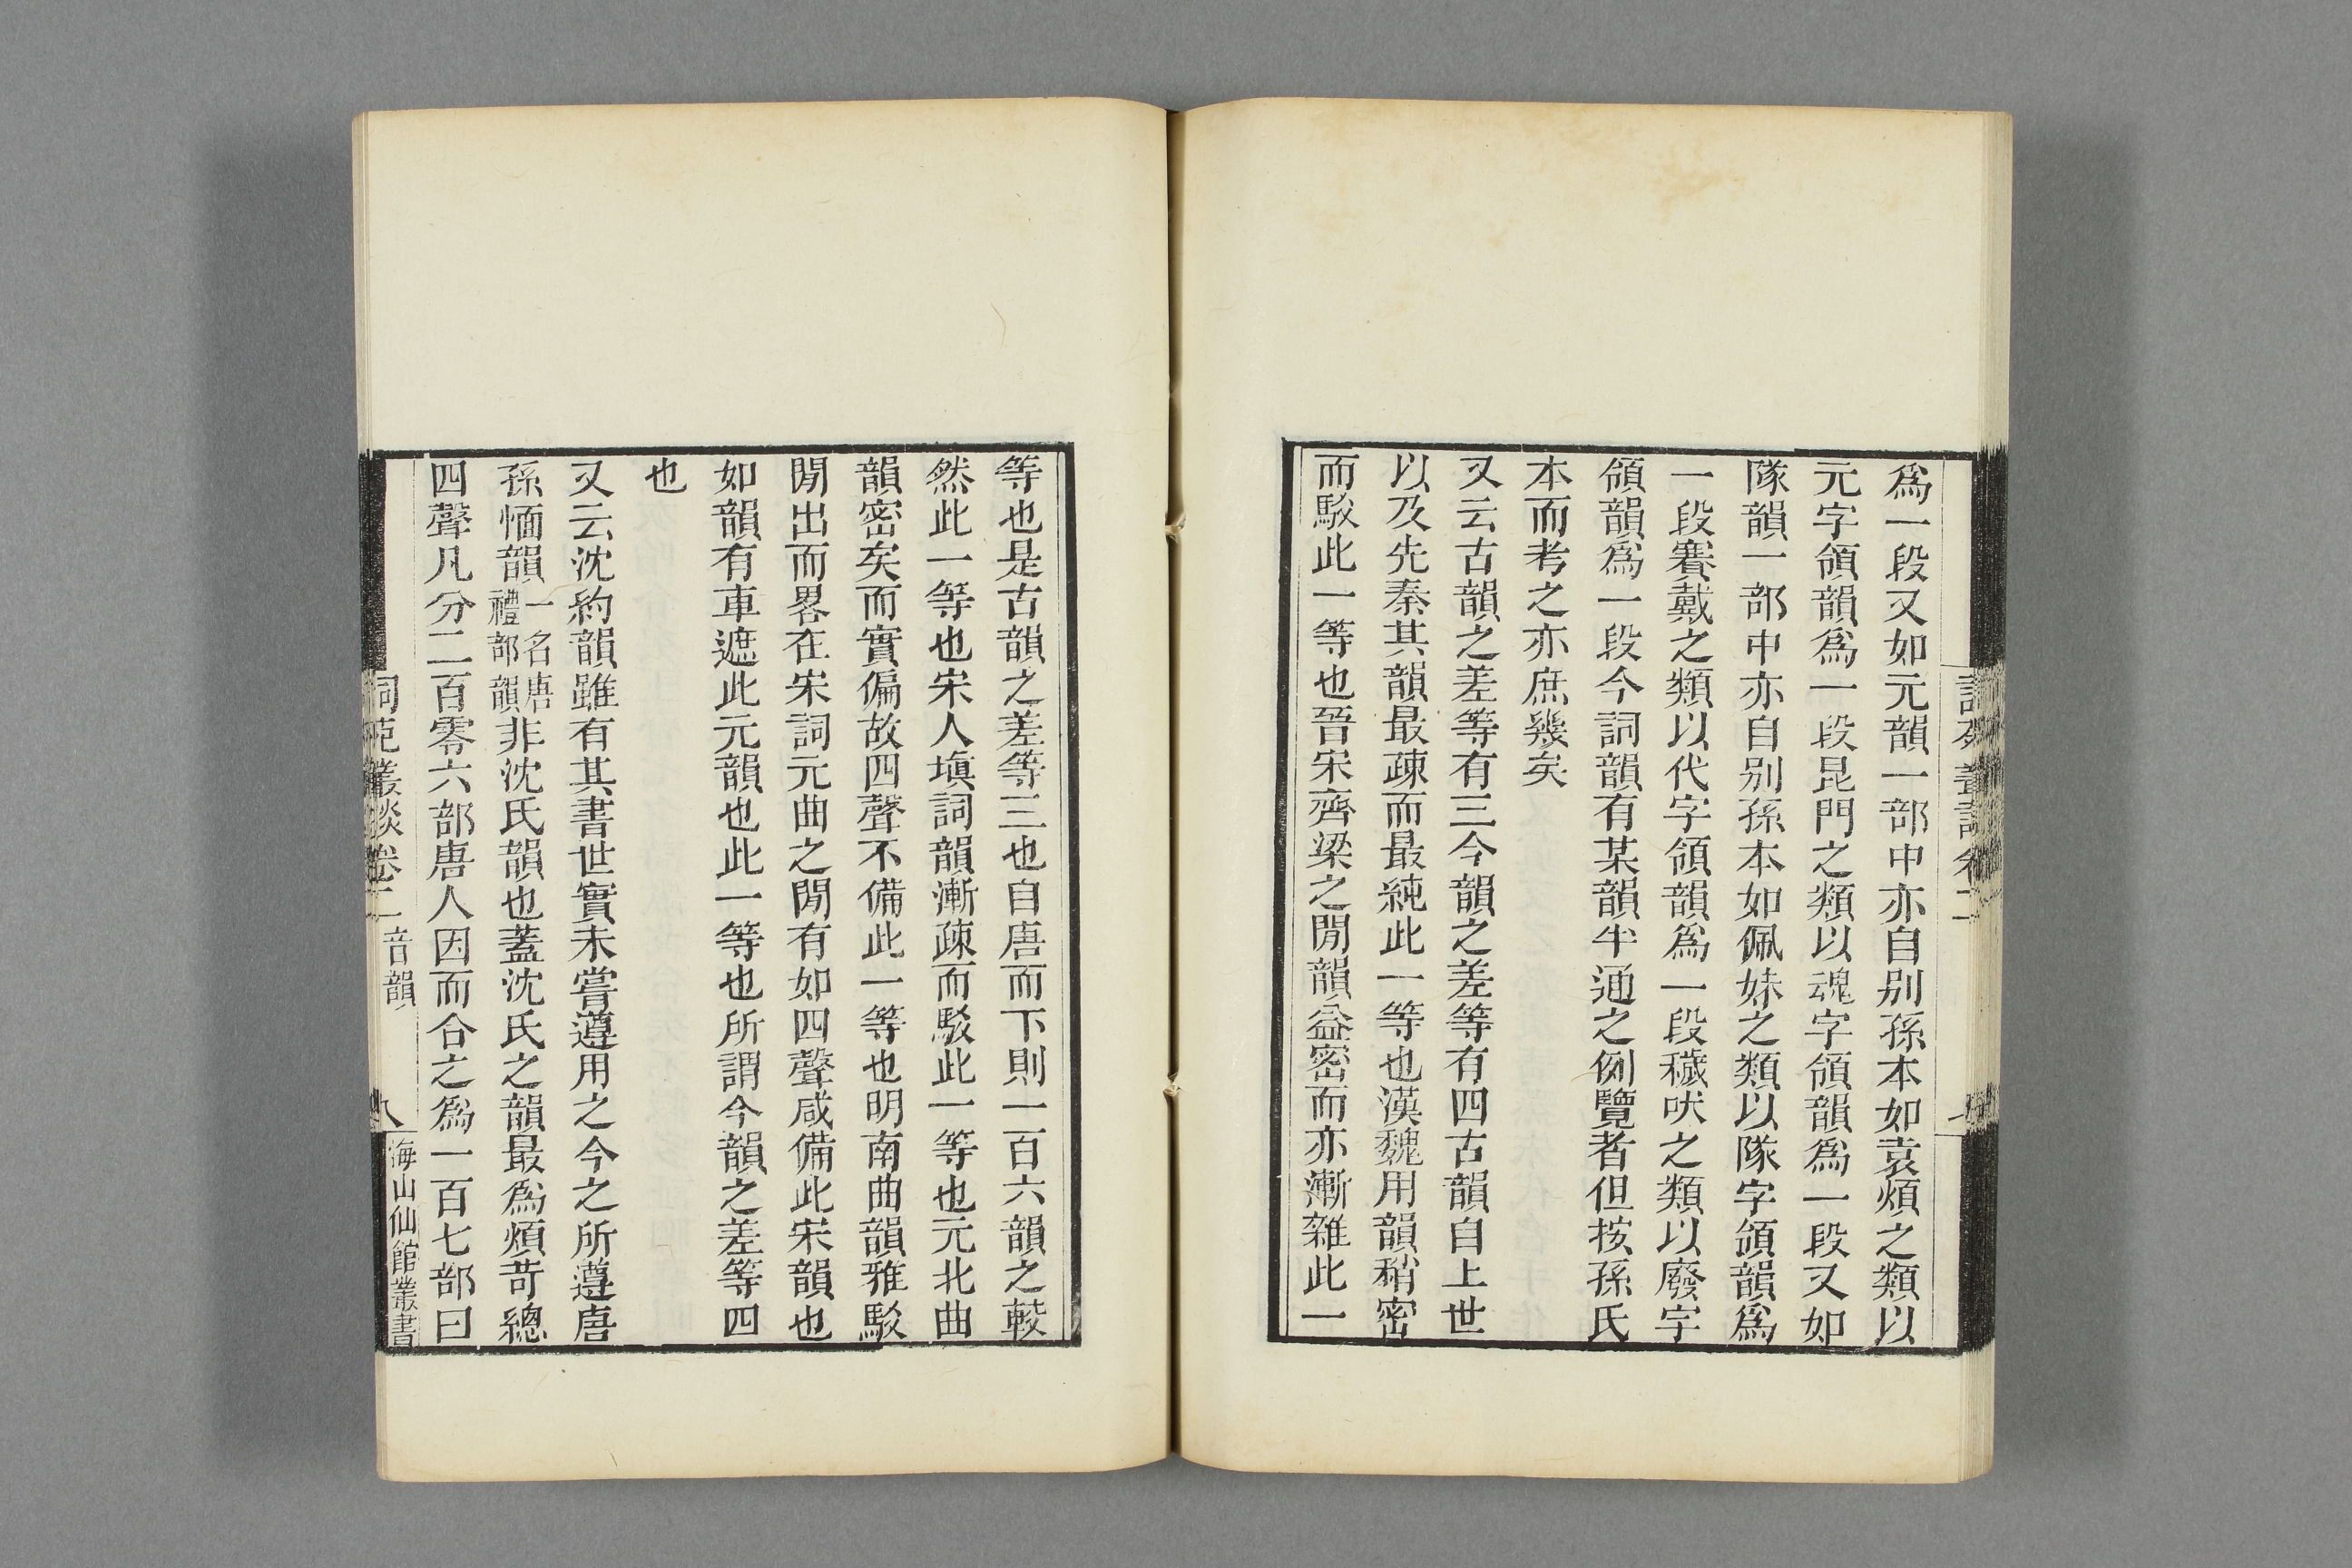 爲一段又如元韻一部中亦自别孫本如袁煩之類以
元字領韻爲一段昆門之類以魂字領韻爲一段又如
隊韻一部中亦自别孫本如佩妹之類以隊字領韻爲
一段賽戴之類以代字領韻爲一段穢吠之類以廢字
領韻爲一段今詞韻有某韻半通之例覽者但按孫氏
本而考之亦庶幾矣
又云古韻之差等有三今韻之差等有四古韻自上世
以及先秦其韻最疎而最純此一等也漢魏用韻稍密
而駁此一等也晉宋齊梁之閒韻益密而亦漸雜此一
等也是古韻之差等三也自唐而下則一百六韻之較
然此一等也宋人塡詞韻漸疎而駁此一等也元北曲
韻密矣而實偏故四聲不備此一等也明南曲韻雅駁
閒出而畧在宋詞元曲之閒有如四聲咸備此宋韻也
如韻有車遮此元韻也此一等也所謂今韻之差等四
也
又云沈約韻雖有其書世實未嘗遵用之今之所遵唐
孫愐韻一名唐禮部韻非沈氏韻也蓋沈氏之韻最爲煩苛總
四聲凡分二百零六部唐人因而合之爲一百七部曰
詞苑叢談卷二 音韻 八 海山仙館叢書